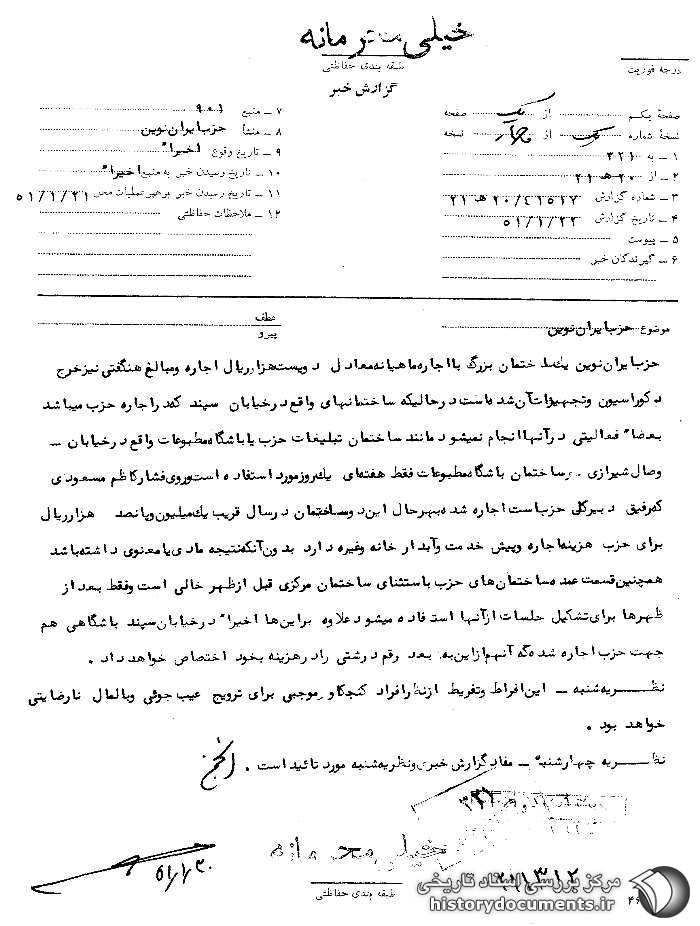 خیلی محرمانه
طبقه بندی حفاظتی
گزارش خبر
درجه فوریت
صفحهٔ یکم از یک صفحه
نسخهٔ شماره یک از چهار نسخه
۱ ـ به ۳۲۱
۲ ـ از ۲۰ هـ ۲۱
۳ ـ شماره گزارش ۲۰/۴۱۵۱۲ هـ ۲۱
۴ ـ تاریخ گزارش ۵۱/۱/۲۲
۵ ـ پیوست
۶ ـ گیرندگان خبر
۷ ـ منبع ۹۰۱
۸ ـ منشأ حزب ایران نوین
۹ ـ تاریخ وقوع اخیرا"
۱۰ ـ تاریخ رسیدن خبر به منبع اخیرا"
۱۱ ـ تاریخ رسیدن خبر برهبر عملیات محل ۵۱/۱/۲۱
۱۲ ـ ملاحظات حفاظتی
موضوع حزب ایران نوین
عطف
پیرو
حزب ایران نوین یک ساختمان بزرگ با اجاره ماهیانه معادل دویست هزار ریال اجاره و مبالغ هنگفتی نیز خرج
دکوراسیون و تجهیزات آن شده است در حالیکه ساختمانهای واقع در خیابان سپند که در اجاره حزب میباشد
بعضا" فعالیتی در آنها انجام نمیشود مانند ساختمان تبلیغات حزب یا باشگاه مطبوعات واقع در خیابان ـ
وصال شیرازی ساختمان باشگاه مطبوعات فقط هفته‌ای یک روز مورد استفاده است و روی فشار کاظم مسعودی
که رفیق دبیر کلی حزب است اجاره شده بهرحال این دو ساختمان در سال قریب یک میلیون و پانصد هزار ریال
برای حزب هزینه اجاره و پیش خدمت و آبدار خانه و غیره دارد بدون آنکه نتیجه مادی یا معنوی داشته باشد
همچنین قسمت عمده ساختمان‌های حزب باستثنای ساختمان مرکزی قبل از ظهر خالی است و فقط بعد از
ظهرها برای تشکیل جلسات از آنها استفاده میشود علاوه بر این‌ها اخیرا" در خیابان سپند باشگاهی هم
جهت حزب اجاره شده که آنهم از این به بعد رقم درشتی را در هزینه بخود اختصاص خواهد داد .
نظـــریه شنبه ـ این افراط و تفریط از نظر افراد کنجکاو موجبی برای ترویج عیب جوئی و بالمال نارضایتی
خواهد بود .
نظـــریه چهارشنبه ـ مفاد گزارش خبری و نظریه شنبه مورد تائید است .
خیلی محرمانه
طبقه بندی حفاظتی
۵۱/۱/۳۰
۳۱۲
مرکز بررسی اسناد تاریخی
historydocuments.ir